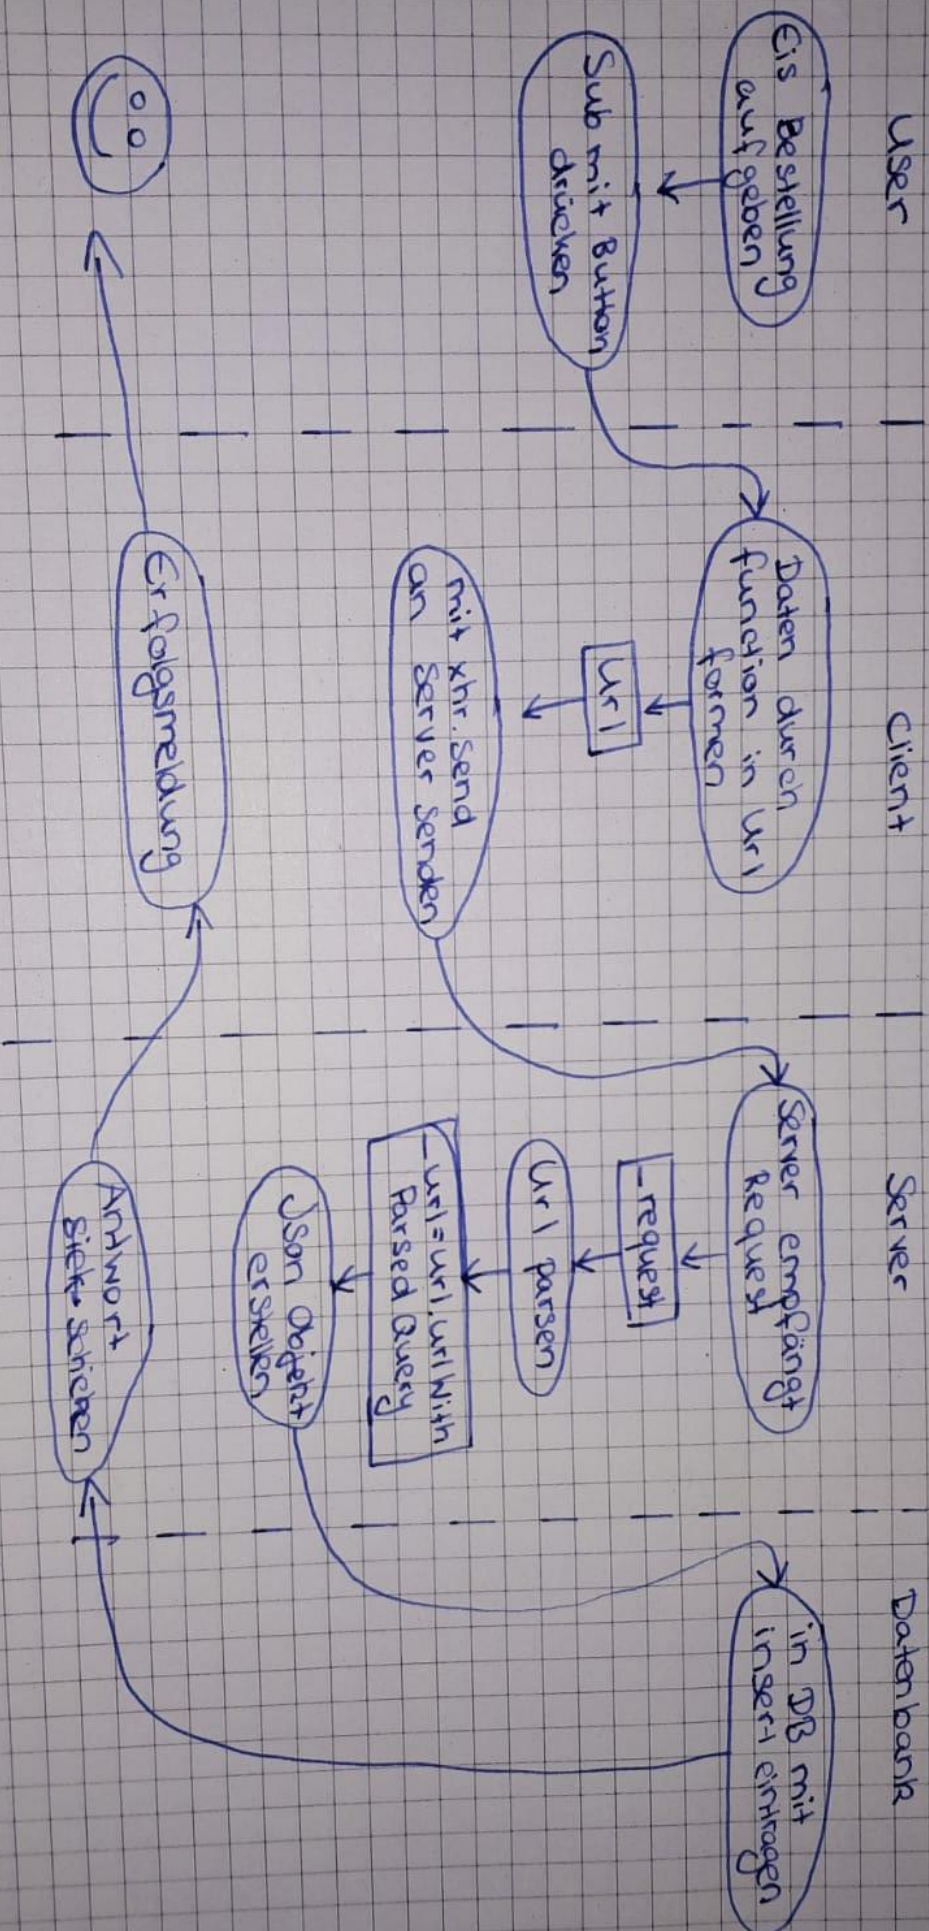 User
Client
Server
Datenbank
Eis Bestellung
aufgeben
Submit Button
drücken
Daten durch
function in Url
formen
Url
mit xhr.send
an Server senden
Server empfängt
Request
_request
Url parsen
_url=url.urlWith
Parsed Query
Json Objekt
erstellen
in DB mit
insert eintragen
Antwort
schicken
Erfolgsmeldung